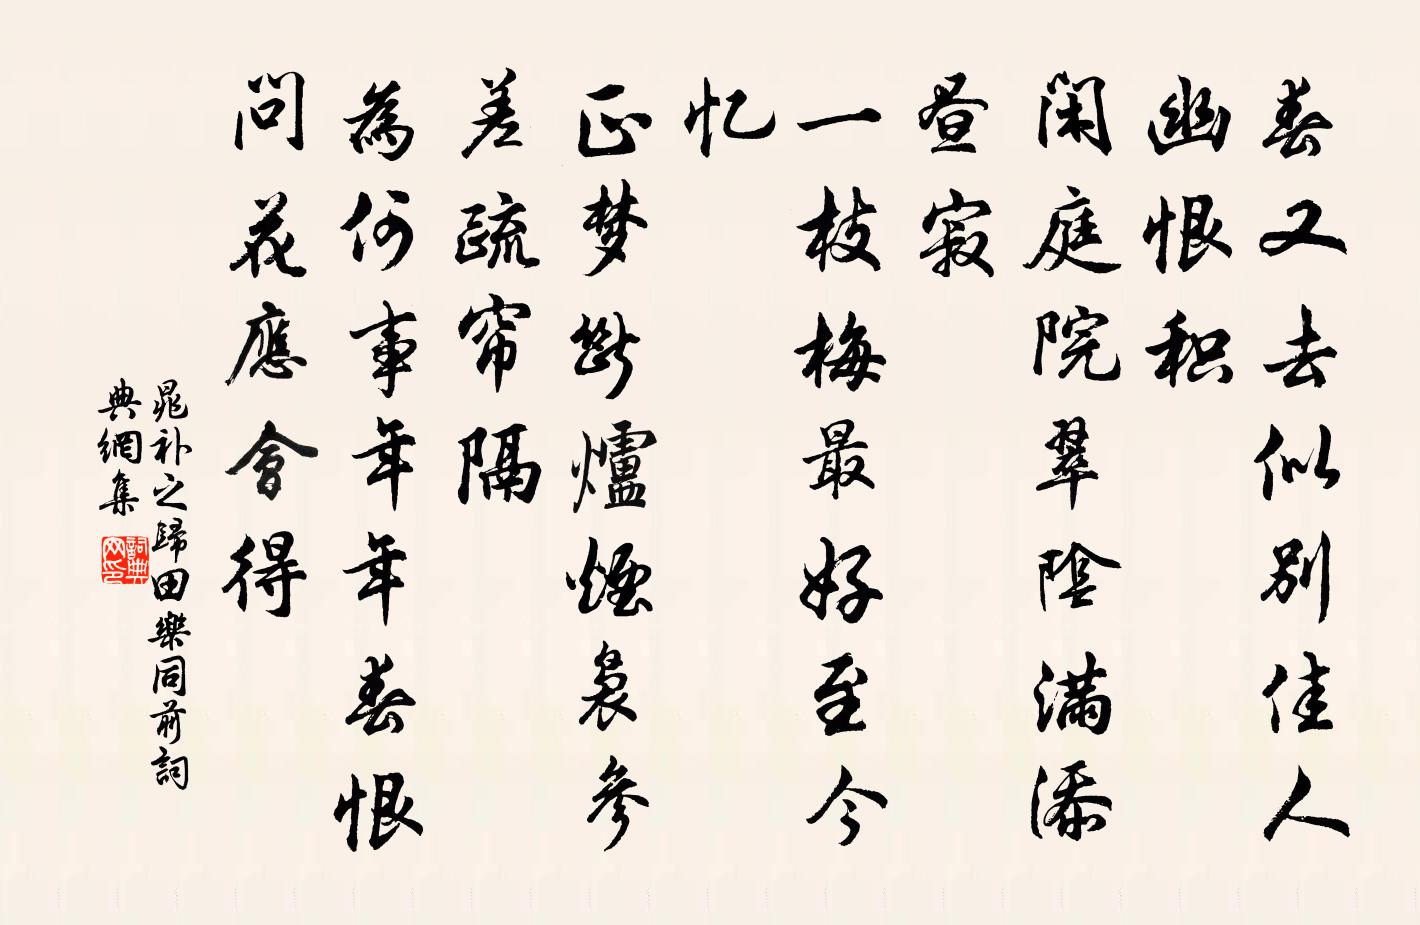 春又去似别佳人
幽恨积
閑庭院翠陰滿添
昼寂
一枝梅最好至今
忆
正梦断爐煙裊參
差疏帘隔
為何事年年春恨
問花應會得
晁补之歸田樂同前詞
典網集
詞典
网印